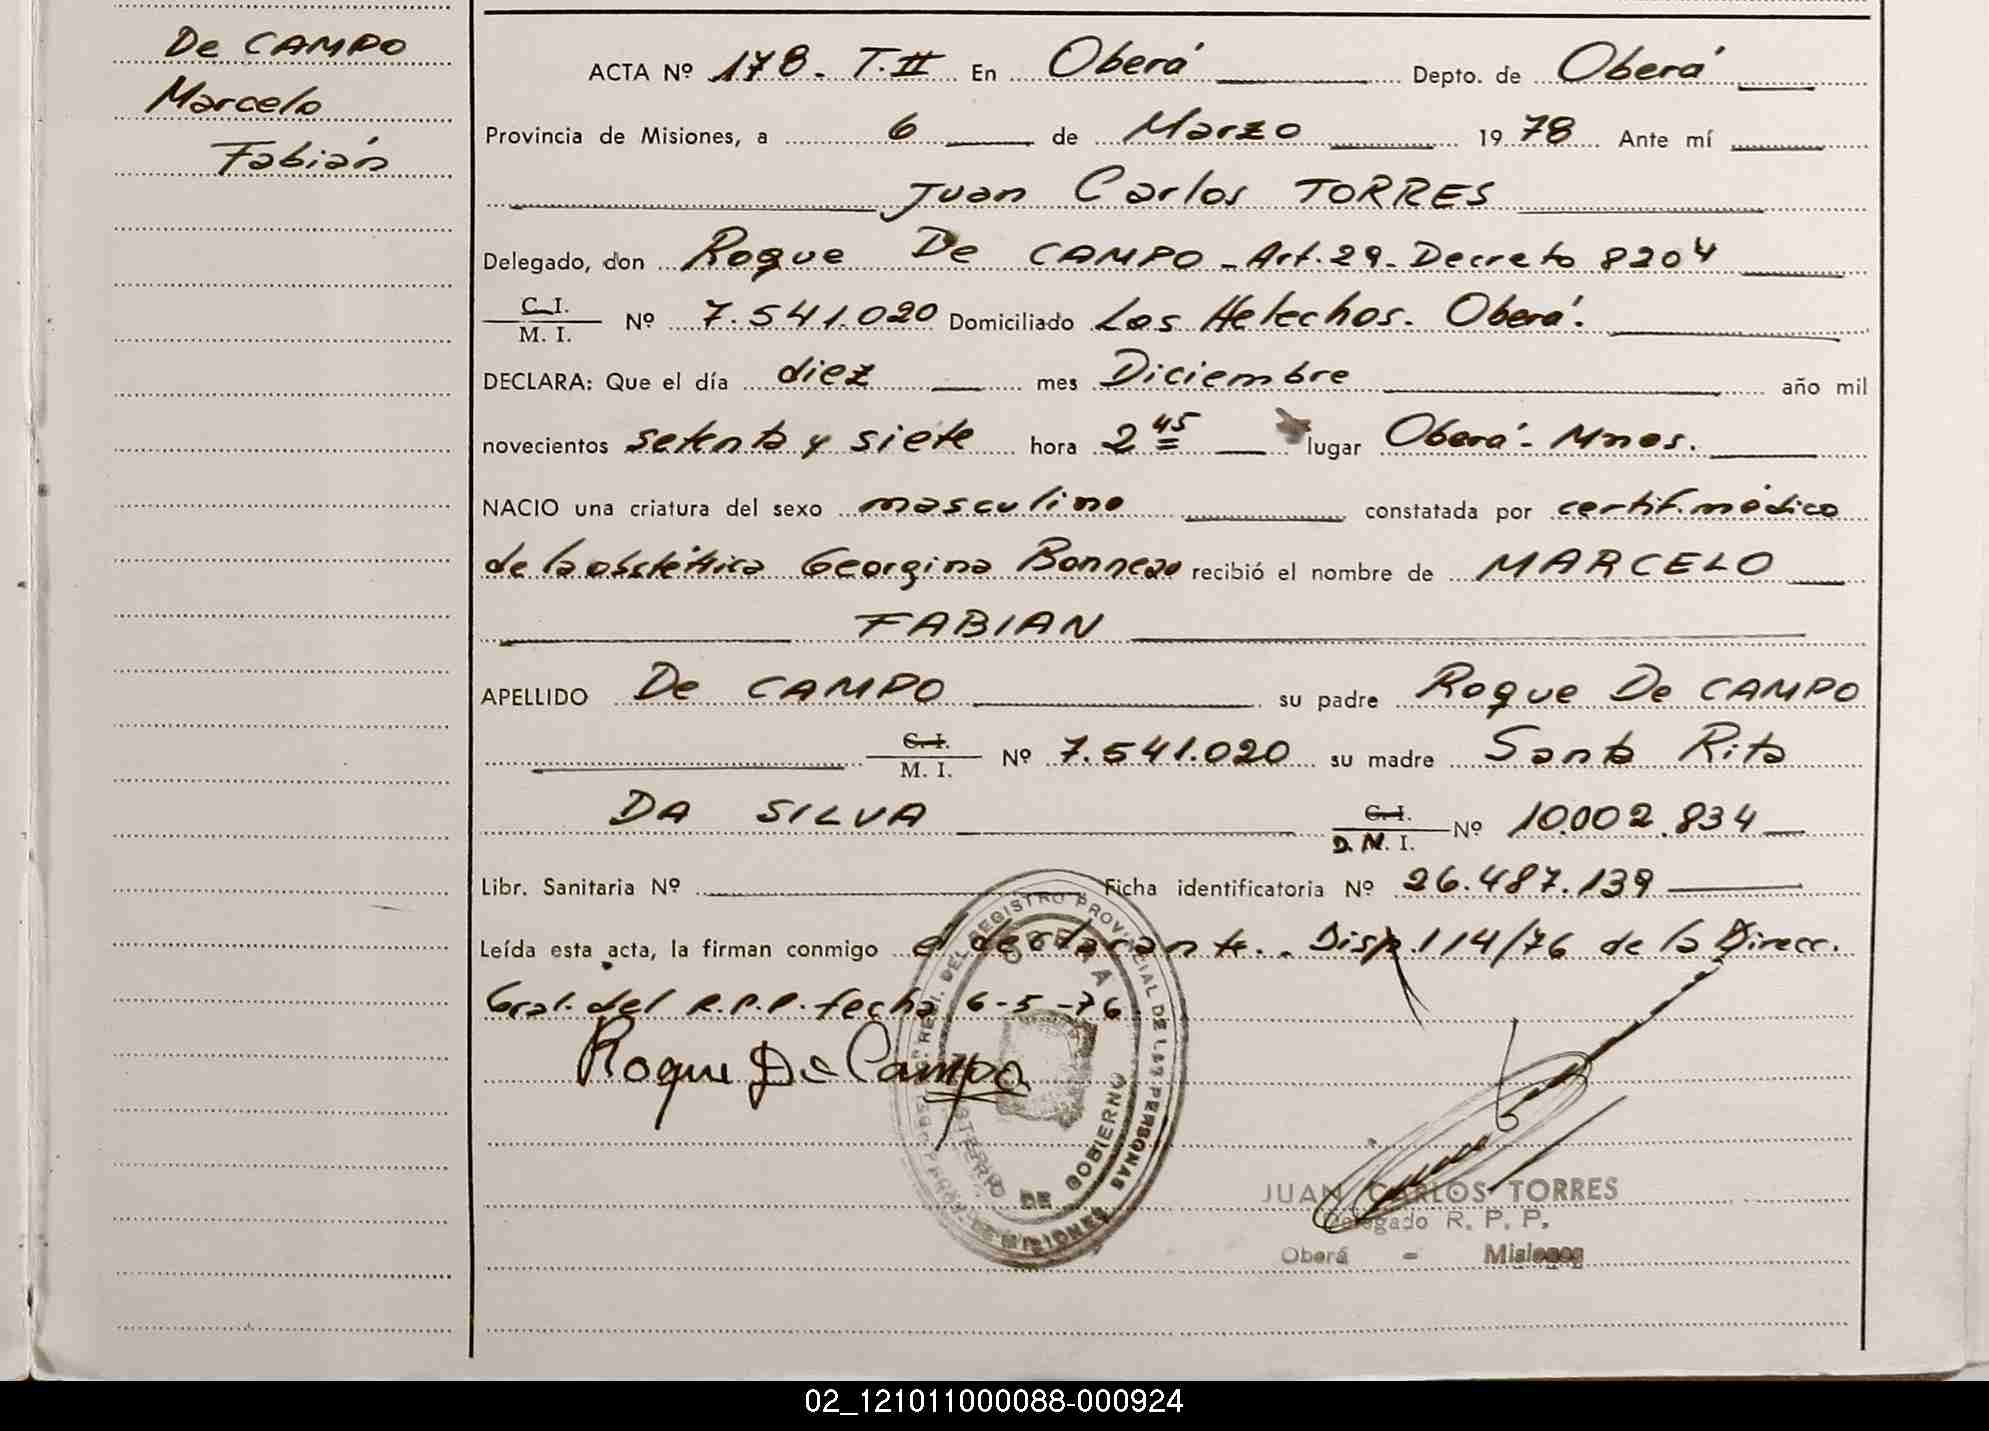 De CAMPO
Marcelo
Fabián
ACTA Nº 178. T.II En Oberá Depto. de Oberá
Provincia de Misiones, a 6 de Marzo 1978 Ante mí
Juan Carlos TORRES
Delegado, don Roque De CAMPO - Art. 29 - Decreto 8204
C.I. / M. I. Nº 7.541.020 Domiciliado Los Helechos. Oberá.
DECLARA: Que el día diez mes Diciembre año mil
novecientos setenta y siete hora 2 45 lugar Oberá - Mnes.
NACIO una criatura del sexo masculino constatada por certif. médico
de la obstétrica Georgina recibió el nombre de MARCELO
FABIAN
APELLIDO De CAMPO su padre Roque De CAMPO
C.I. / M. I. Nº 7.541.020 su madre Santa Rita
DA SILVA C.I. / D.N.I. Nº 10.002.834
Libr. Sanitaria Nº Ficha identificatoria Nº 26.487.139
Leída esta acta, la firman conmigo el declarante. - Disp. 114/76 de la Direcc.
Gral. del R.P.P. fecha 6-5-76
Roque De Campo
OBERA
DEL REGISTRO PROVINCIAL DE LAS PERSONAS
MINISTERIO DE GOBIERNO
MISIONES
JUAN CARLOS TORRES
Delegado R. P. P.
Oberá - Misiones
02_121011000088-000924